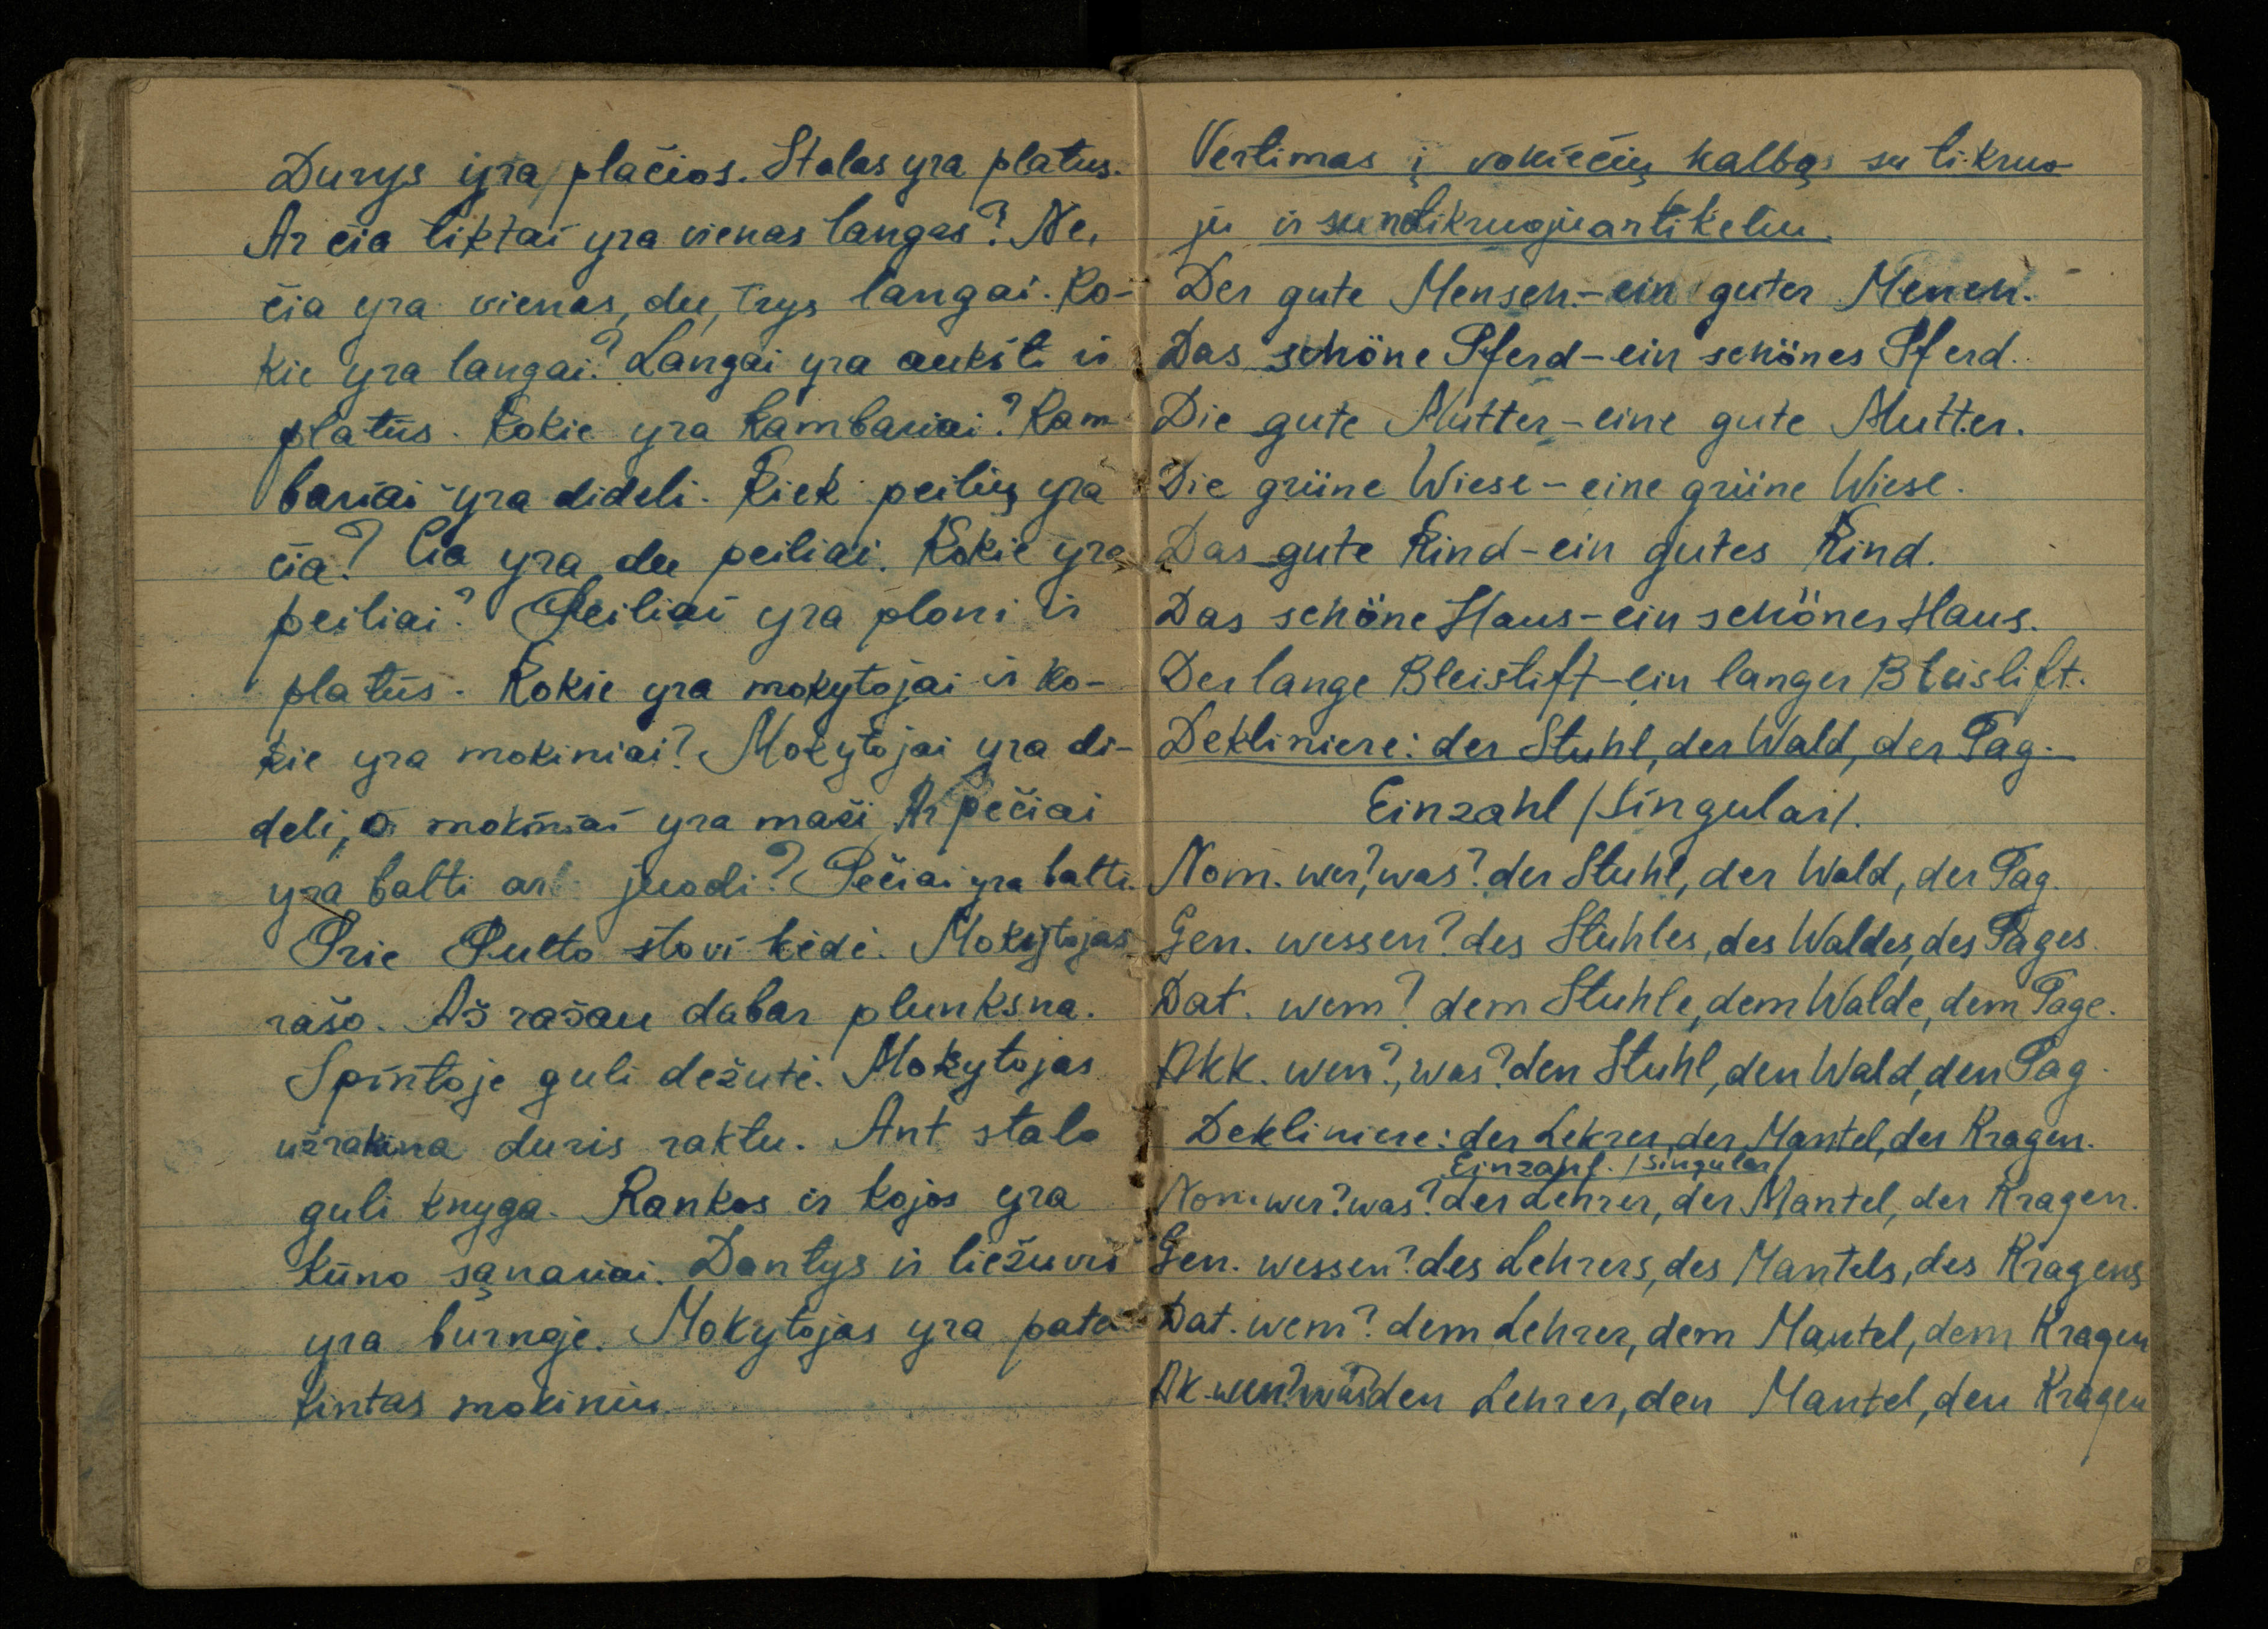 Durys yra plačios. Stalas yra platus.
Ar čia tiktai yra vienas langas? Ne,
čia yra vienas, du, trys langai. Ko-
kie yra langai? Langai yra aukšti ir
platūs. Kokie yra kambariai? Kam-
bariai yra dideli. Kiek peilių yra
čia? Čia yra du peiliai. Kokie yra
peiliai? Peiliai yra ploni ir
platūs. Kokie yra mokytojai ir ko-
kie yra mokiniai? Mokytojai yra di-
deli, o mokiniai yra maži. Ar pečiai
yra balti ar juodi? Pečiai yra balti.
Prie Pulto stovi kėdė. Mokytojas
rašo. Aš rašau dabar plunksna.
Spintoje guli dežutė. Mokytojas
užrakina duris raktu. Ant stalo
guli knyga. Rankos ir kojos yra
kūno sąnariai. Dantys ir liežuvis
yra burnoje. Mokytojas yra paten
kintas mokiniu.
Vertimas į vokiečių kalbą su tikruo
ju ir su netikruoju artikeliu.
Der gute Mensch.-ein guter Mench.
Das schöne Pferd-ein schönes Pferd.
Die gute Mutter-eine gute Mutter.
Die grüne Wiese-eine grüne Wiese.
Das gute Kind-ein gutes Kind.
Das schöne Haus-ein schönes Haus.
Der lange Bleistift-ein langer Bleistift.
Dekliniere: der Stuhl, der Wald, der Tag.
Einzahl /Singular/.
Nom. wer?, was? der Stuhl, der Wald, der Tag.
Gen. wessen? des Stuhles, des Waldes, des Tages.
Dat. wem? dem Stuhle, dem Walde, dem Tage.
Akk. wen?, was? den Stuhl, den Wald, den Tag.
Dekliniere: der Lekrer, der Mantel, der Kragen.
Einzahl. /Singular/
Nom. wer? was? der Lehrer, der Mantel, der Kragen.
Gen. wessen? des Lehrers, des Mantels, des Kragens
Dat. wem? dem Lehrer, dem Mantel, dem Kragen
Ak. wen? was? den Lehrer, den Mantel, den Kragen